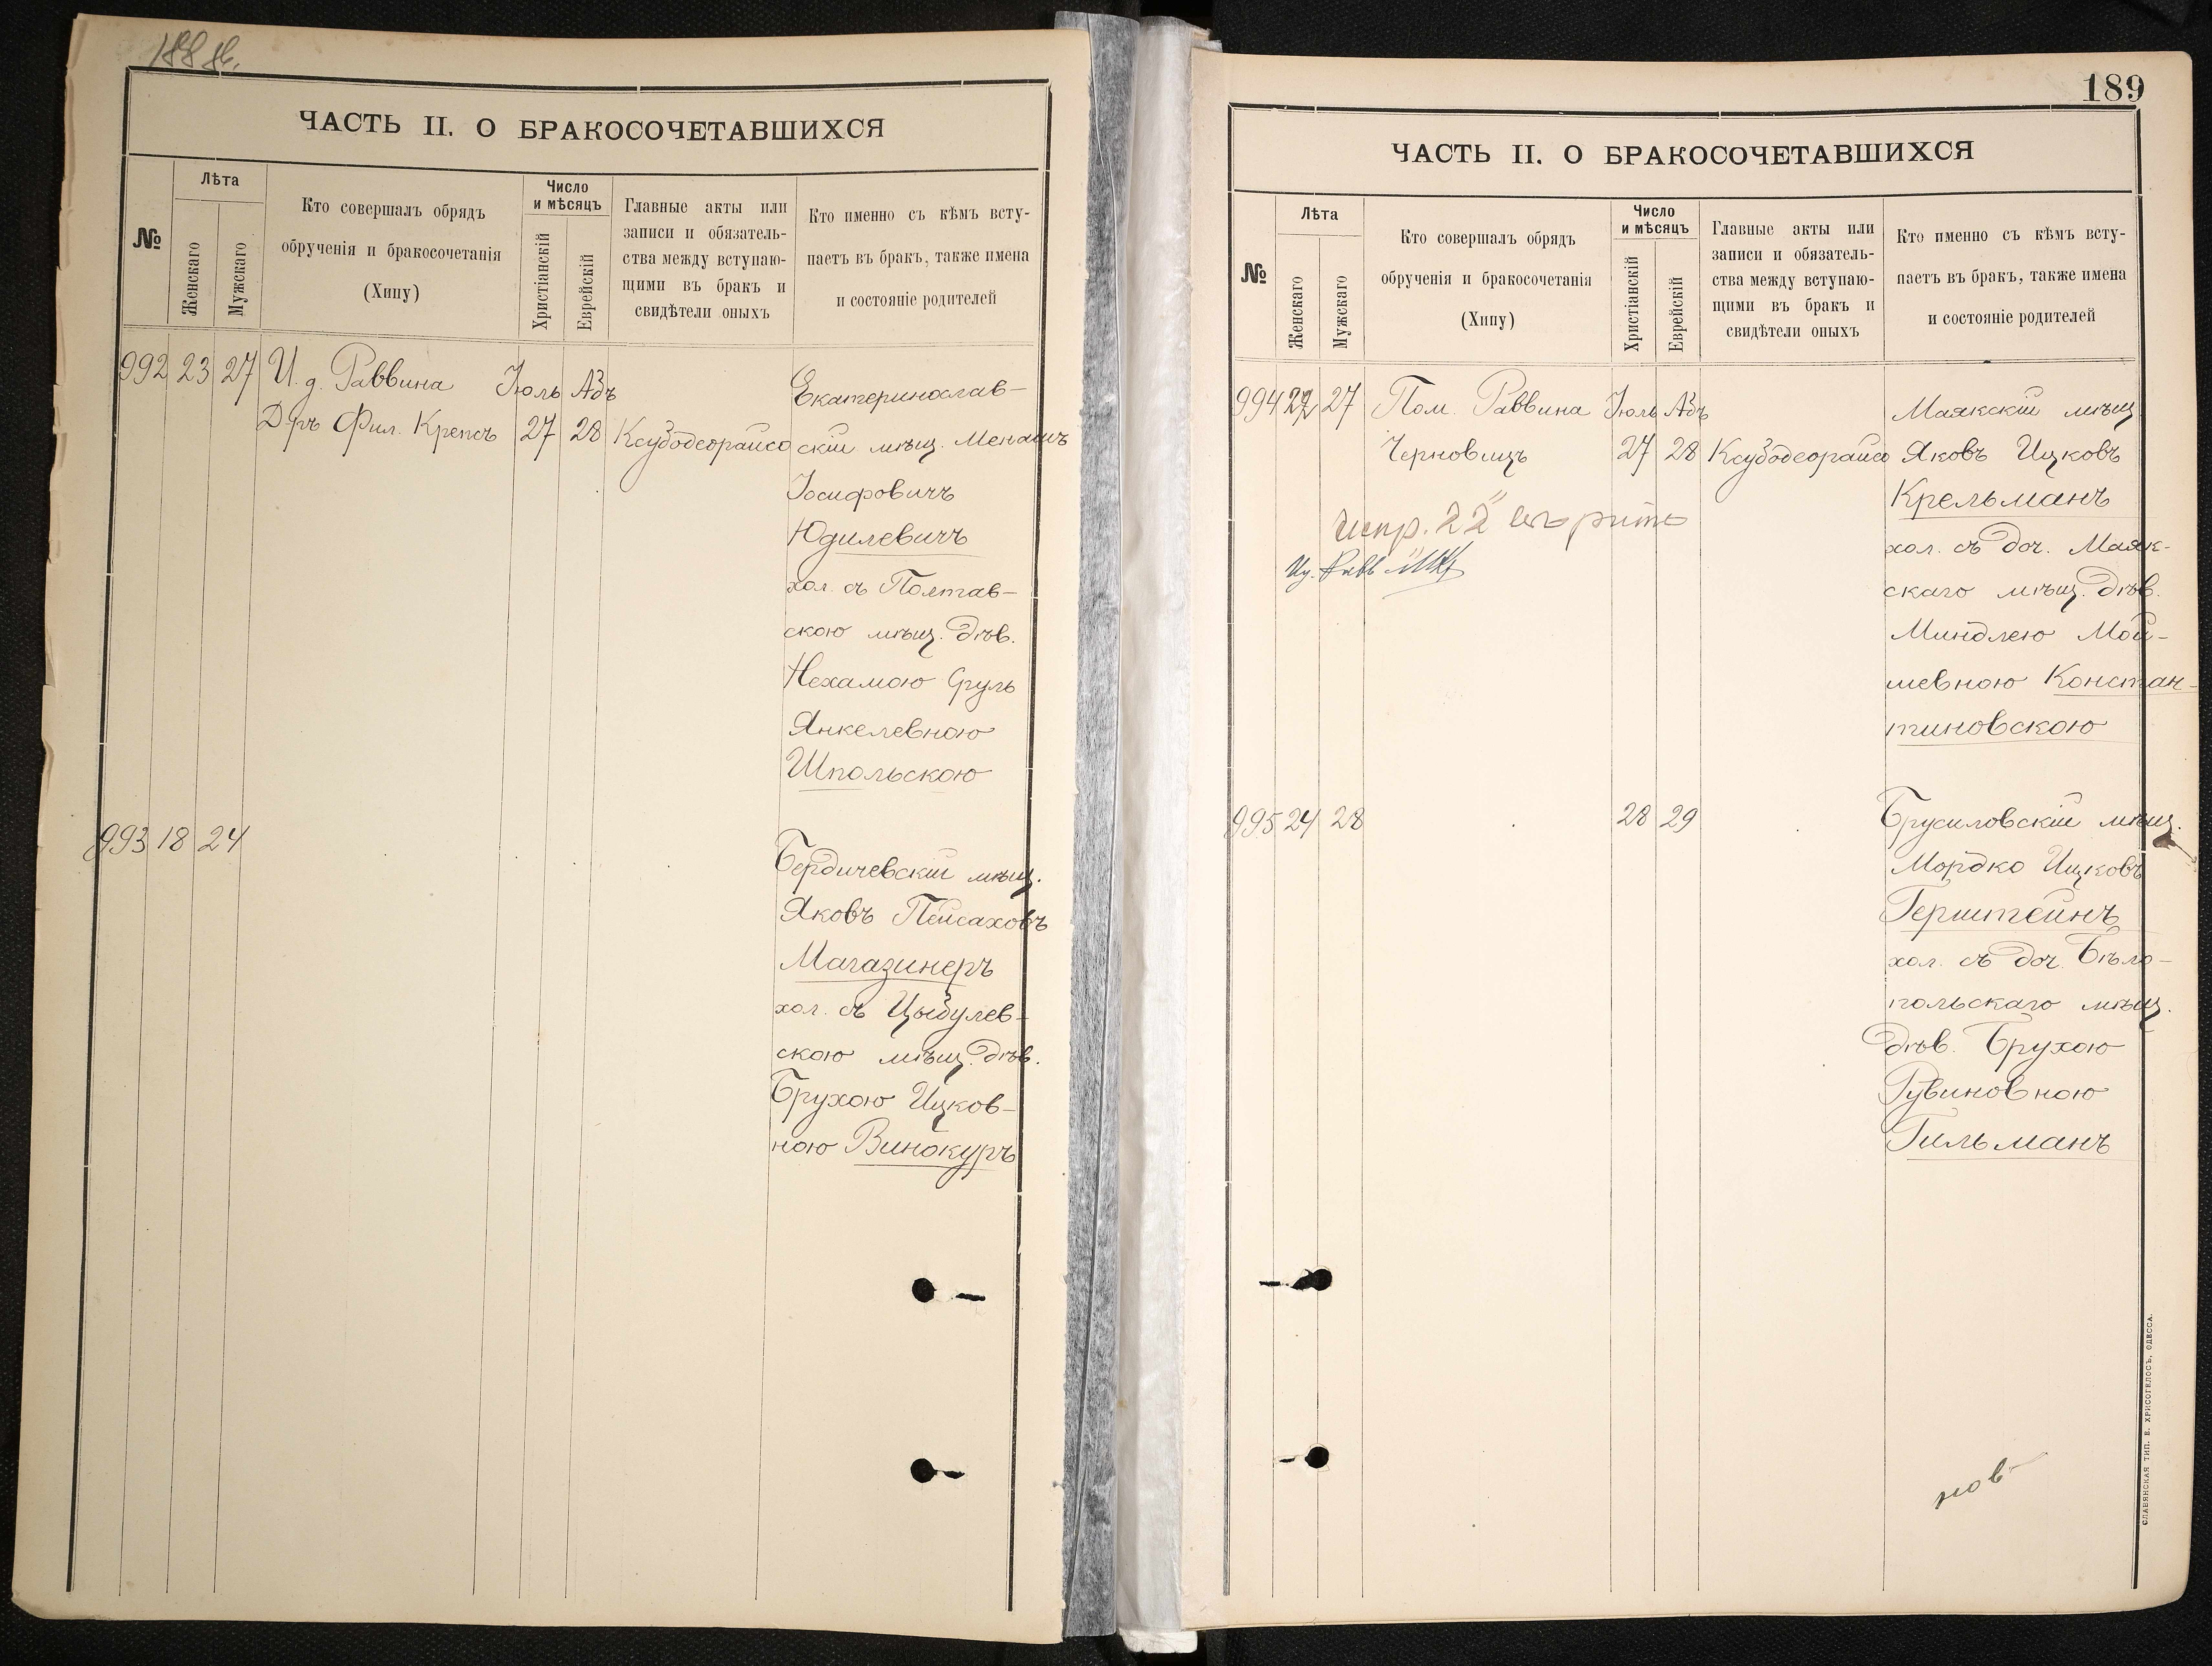 188 об.
ЧАСТЬ II. О БРАКОСОЧЕТАВШИХСЯ
№
Лѣта
Женскаго
Мужскаго
Кто совершалъ обрядъ
обрученія и бракосочетанія
(Хипу)
Число
и мѣсяцъ
Христіанскій
Еврейскій
Главные акты или
записи и обязатель-
ства между вступаю-
щими въ бракъ и
свидѣтели оныхъ
Кто именно съ кѣмъ всту-
паетъ въ бракъ, также имена
и состояніе родителей
992 23 27 И. д. Раввина Іюль Абъ Екатеринослав-
Д-ръ Фил. Крепсъ 27 28 Ксубодеорайсо скій мѣщ. Менашъ
Іосифовичъ
Юдилевичъ
хол. съ Полтав-
скою мѣщ. дѣв.
Нехамою Сруль
Янкелевною
Шпольскою
993 18 24
Бердичевскій мѣщ.
Яковъ Пейсаховъ
Магазинеръ
хол. съ Цыбулев-
скою мѣщ. дѣв.
Брухою Ицков-
ною Винокуръ
189
ЧАСТЬ II. О БРАКОСОЧЕТАВШИХСЯ
№
Лѣта
Женскаго
Мужскаго
Кто совершалъ обрядъ
обрученія и бракосочетанія
(Хипу)
Число
и мѣсяцъ
Христіанскій
Еврейскій
Главные акты или
записи и обязатель-
ства между вступаю-
щими въ бракъ и
свидѣтели оныхъ
Кто именно съ кѣмъ всту-
паетъ въ бракъ, также имена
и состояніе родителей
994 22 27 Пом. Раввина Іюль Абъ Маякскій мѣщ.
Черновицъ 27 28 Ксубодеорайсо Яковъ Ицковъ
Крельманъ
испр. "22" вѣрить
И. д. Равв
хол. съ доч. Маяк-
скаго мѣщ. дѣв.
Миндлею Мой-
шевною Констан-
тиновскою
995 24 28 28 29 Брусиловскій мѣщ.
Мордко Ицковъ
Герштейнъ
хол. съ доч. Бѣло-
польскаго мѣщ.
дѣв. Брухою
Рувиновною
Гильманъ
нов
СЛАВЯНСКАЯ ТИП. Е. ХРИСОГЕЛОСЪ, ОДЕССА.